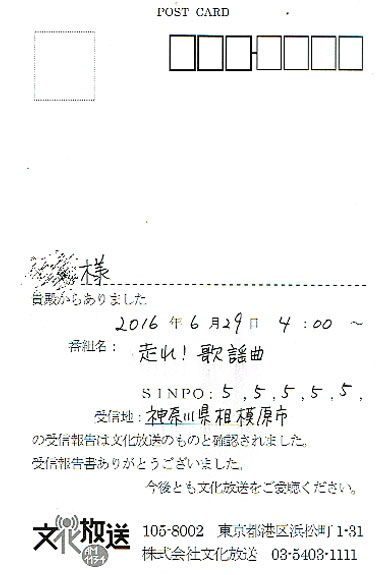 POST CARD
様
貴殿からありました
2016 年 6 月 29 日 4:00 ~
番組名: 走れ! 歌謡曲
SINPO: 5, 5, 5, 5, 5,
受信地: 神奈川県相模原市
の受信報告は文化放送のものと確認されました。
受信報告書ありがとうございました。
今後とも文化放送をご愛聴ください。
文化放送 105-8002 東京都港区浜松町1-31
AMイチイチ 株式会社文化放送 03-5403-1111